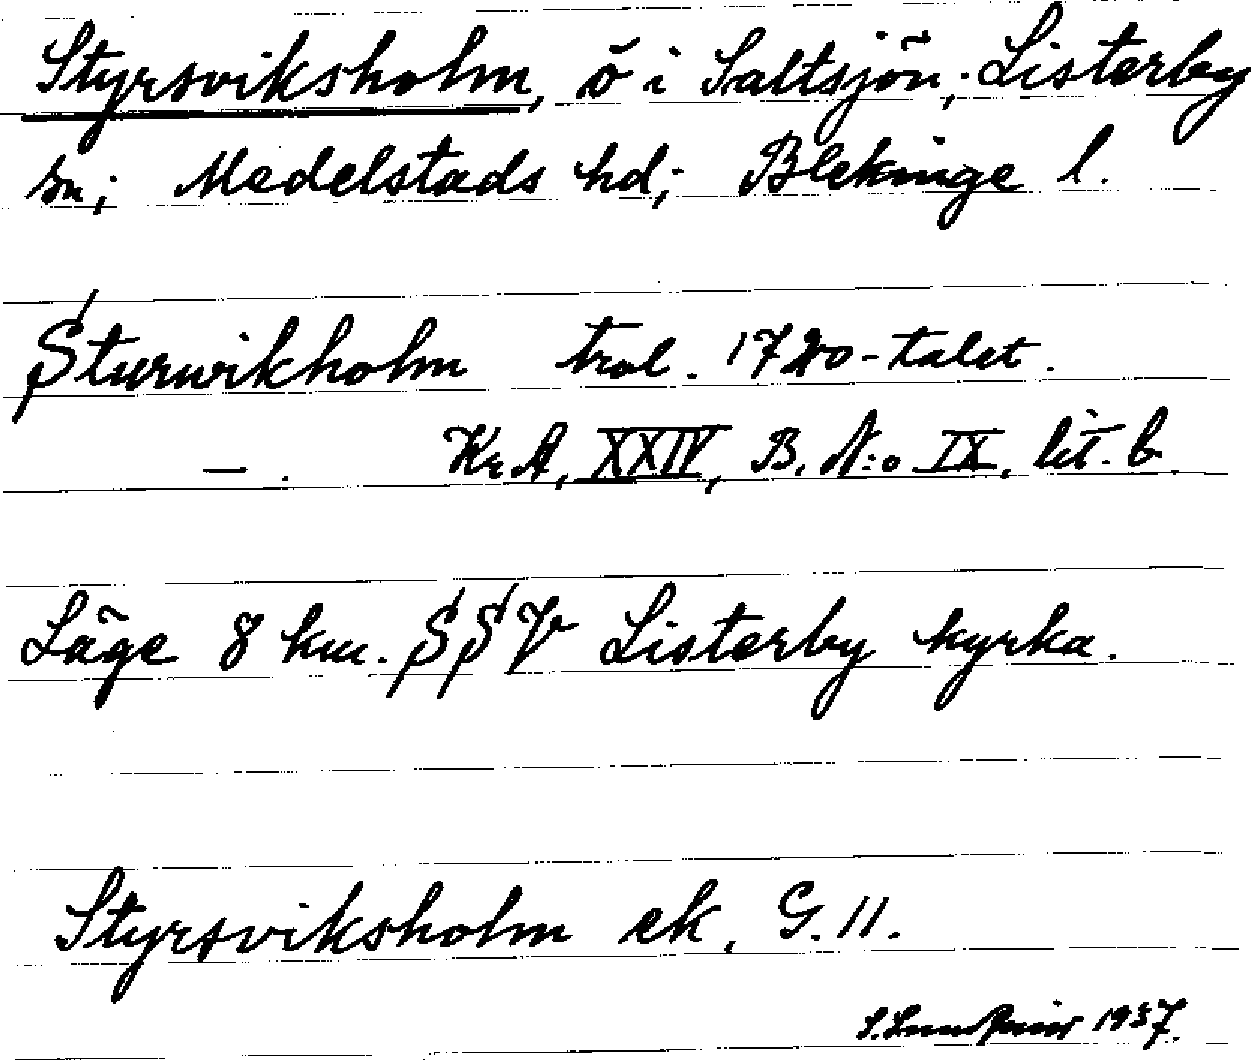 Styrsviksholm, ö i Saltsjön; Listerby
sn; Medelstads hd; Blekinge l.
Sturwikholm trol. 1720-talet.
— . Kr.A, XXIV, B. N:o IX, lit. b.
Läge 8 km. SSV Listerby kyrka.
Styrsviksholm ek. G. 11.
1937.